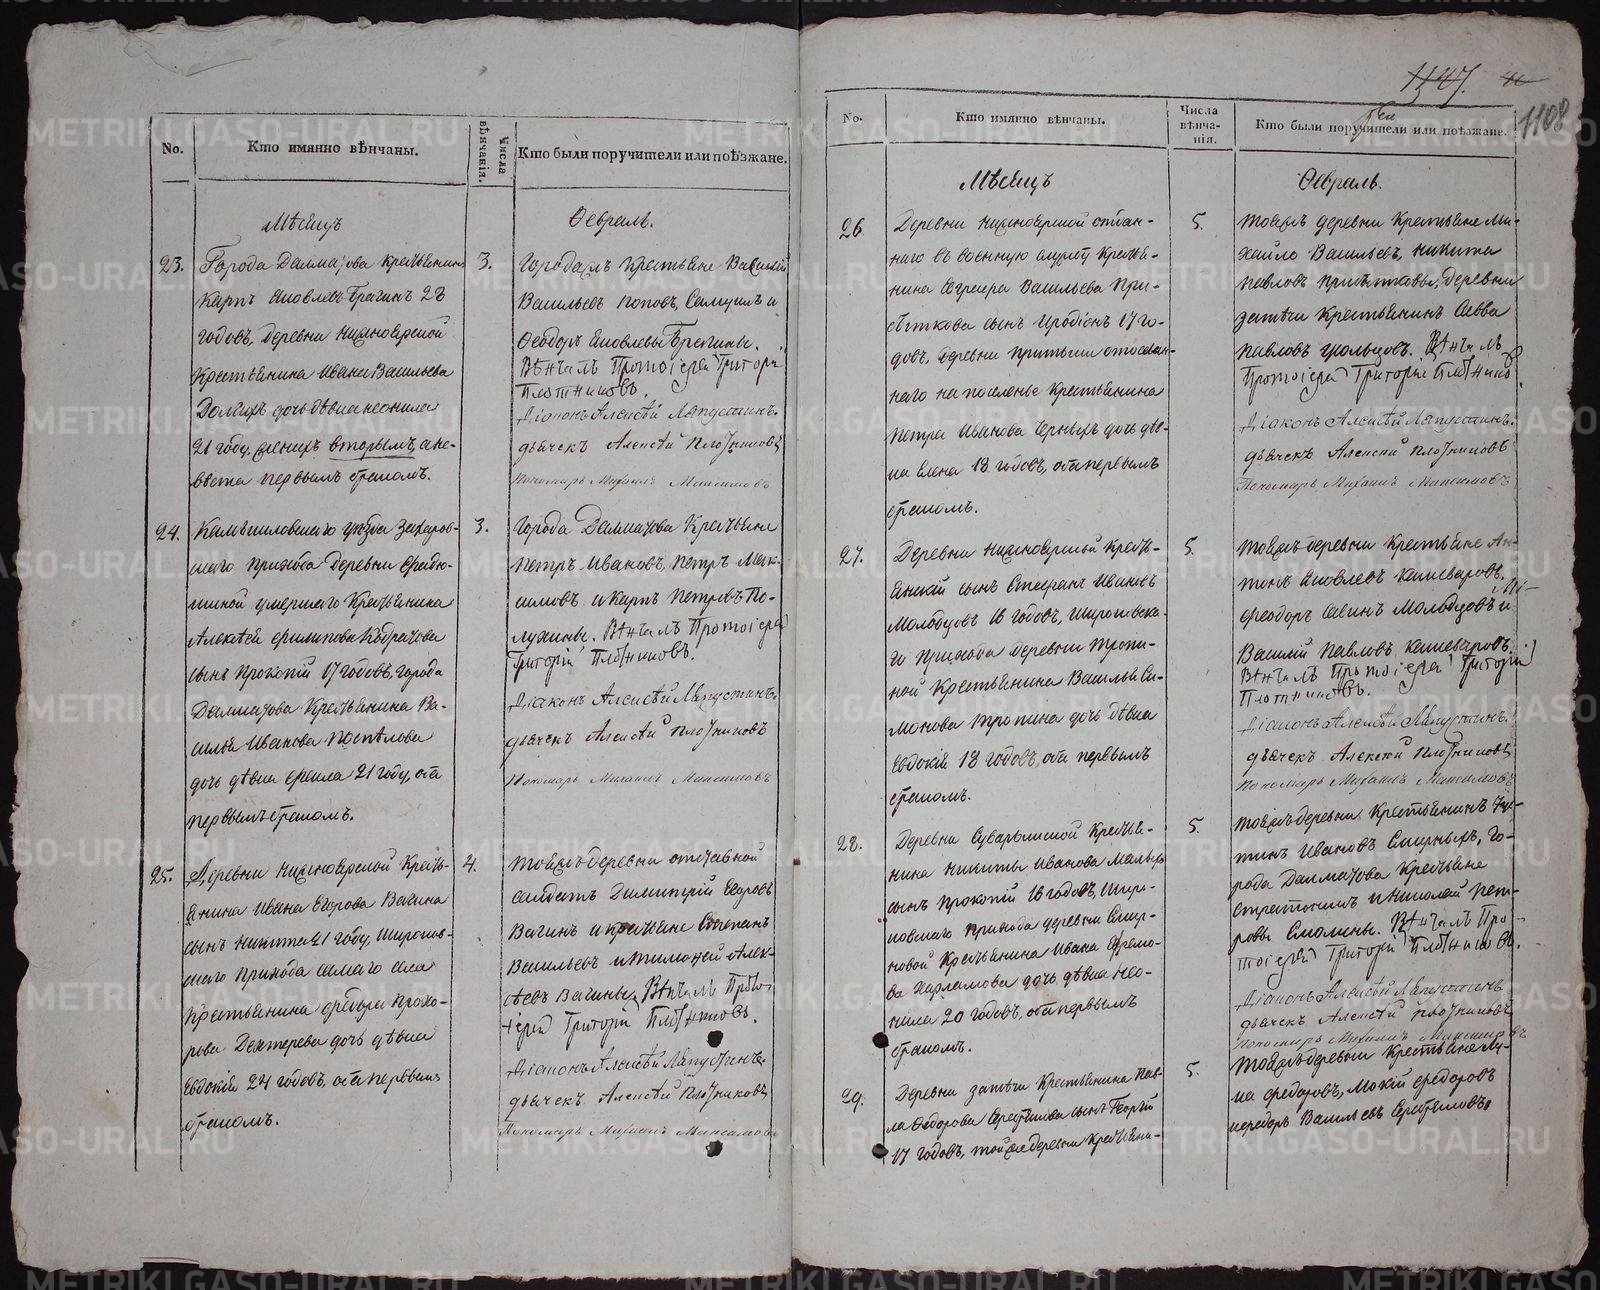 No.
Кто имянно вѣнчаны.
Числа вѣнчанія.
Кто были поручители или поѣзжане.
Мѣсяцъ
Февраль.
23.
Города Далматова крестьянинъ
Карпъ Яковлевъ Брагинъ 23
годовъ, деревни Нижноярской
крестьянина Ивана Васильева
дочь дѣвка неонила
21 году, женихъ вторымъ, а не-
вѣста первымъ бракомъ.
3.
Города тѣхъ крестьяне Василий
Васильевъ Поповъ, Самуилъ и
Феодоръ Яковлевы Брагины.
Вѣнчалъ Протоіерей Григорій
Плотниковъ.
Діаконъ Алексѣй Лапустинъ.
дьячекъ Алексѣй Плотниковъ
Пономарь Михаилъ Максимовъ
24.
Камышловскаго уѣзда Захаров-
скаго прихода деревни
умершаго крестьянина
Алексѣя Филипова
сынъ Прокопій 17 годовъ, города
Далматова крестьянина Ва-
силья Иванова Поспѣлова
дочь дѣвка 21 году, оба
первымъ бракомъ.
3.
Города Далматова крестьяне
Петръ Ивановъ, Петръ Мак-
симовъ и Карпъ Петровъ По-
лухины. Вѣнчалъ Протоіерей
Григорій Плотниковъ.
Діаконъ Алексѣй Лапустинъ.
дьячекъ Алексѣй Плотниковъ
Пономарь Михаилъ Максимовъ
25.
Деревни Нижноярской кресть-
янина Ивана Егорова Вагина
сынъ Никита 21 году, Широков-
скаго прихода самаго села
крестьянина Федора Прохо-
рова Дехтерева дочь дѣвка
Евдокія 24 годовъ, оба первымъ
бракомъ.
4.
Той же деревни отставной
салдатъ Димитрій Егоровъ
Вагинъ и крестьяне Степанъ
Васильевъ и Тимофей Алек-
сѣевъ Вагины. Вѣнчалъ Прото-
іерей Григорій Плотниковъ.
Діаконъ Алексѣй Лапустинъ.
дьячекъ Алексѣй Плотниковъ
Пономарь Михаилъ Максимовъ
1108
No.
Кто имянно вѣнчаны.
Числа вѣнча-
нія.
Кто были поручители или поѣзжане.
Мѣсяцъ
Февраль.
26.
Деревни Нижноярской отдан-
наго въ военную службу крестья-
нина Васильева При-
быткова сынъ Иродіонъ 17 го-
довъ, деревни Притыки отослан-
наго на поселенье крестьянина
Петра Иванова Черныхъ дочь дѣв-
ка Елена 18 годовъ, оба первымъ
бракомъ.
5.
Той же деревни крестьяне Ми-
хайло Васильевъ, Никита
Павловъ Прибытковы, деревни
Затечи крестьянинъ Савва
Павловъ Вѣнчалъ
Протоіерей Григорій Плотников
Діаконъ Алексѣй Лапустинъ.
дьячекъ Алексѣй Плотниковъ
Пономарь Михаилъ Максимовъ
27.
Деревни Нижноярской кресть-
янскій сынъ Стефанъ Ивановъ
Молодцовъ 18 годовъ, Широковска-
го прихода деревни Тропи-
ной крестьянина Василья Си-
монова Тропина дочь дѣвка
Евдокія 18 годовъ, оба первымъ
бракомъ.
5.
Той же деревни крестьяне Ан-
тонъ Яковлевъ Кашеваровъ,
Феодоръ Савинъ Молодцовъ и
Василій Павловъ Кашеваровъ.
Вѣнчалъ Протоіерей Григорій
Плотниковъ.
Діаконъ Алексѣй Лапустинъ.
дьячекъ Алексѣй Плотниковъ
Пономарь Михаилъ Максимовъ
28.
Деревни Суварышской крестья-
нина Никиты Иванова
сынъ Прокопій 18 годовъ, Широ-
ковскаго прихода деревни Смир-
новой крестьянина Ивана Ефремо-
ва Харламова дочь дѣвка Нео-
нила 20 годовъ, оба первымъ
бракомъ.
5.
Той же деревни крестьянинъ Ус-
тинъ Ивановъ Смирныхъ, го-
рода Далматова крестьяне
и Николай Пет-
ровы Смолины. Вѣнчалъ Про-
тоіерей Григорій Плотниковъ.
Діаконъ Алексѣй Лапустинъ
дьячекъ Алексѣй Плотниковъ
Пономарь Михаилъ Максимовъ
29.
Деревни Затечи крестьянина Пав-
ла Федорова сынъ Георгій
17 годовъ, той же деревни крестьяни-
5.
Той же деревни крестьяне Лу-
ка Федоровъ, Мокій Федоровъ
и Федоръ Васильевъ
METRIKI.GASO-URAL.RU